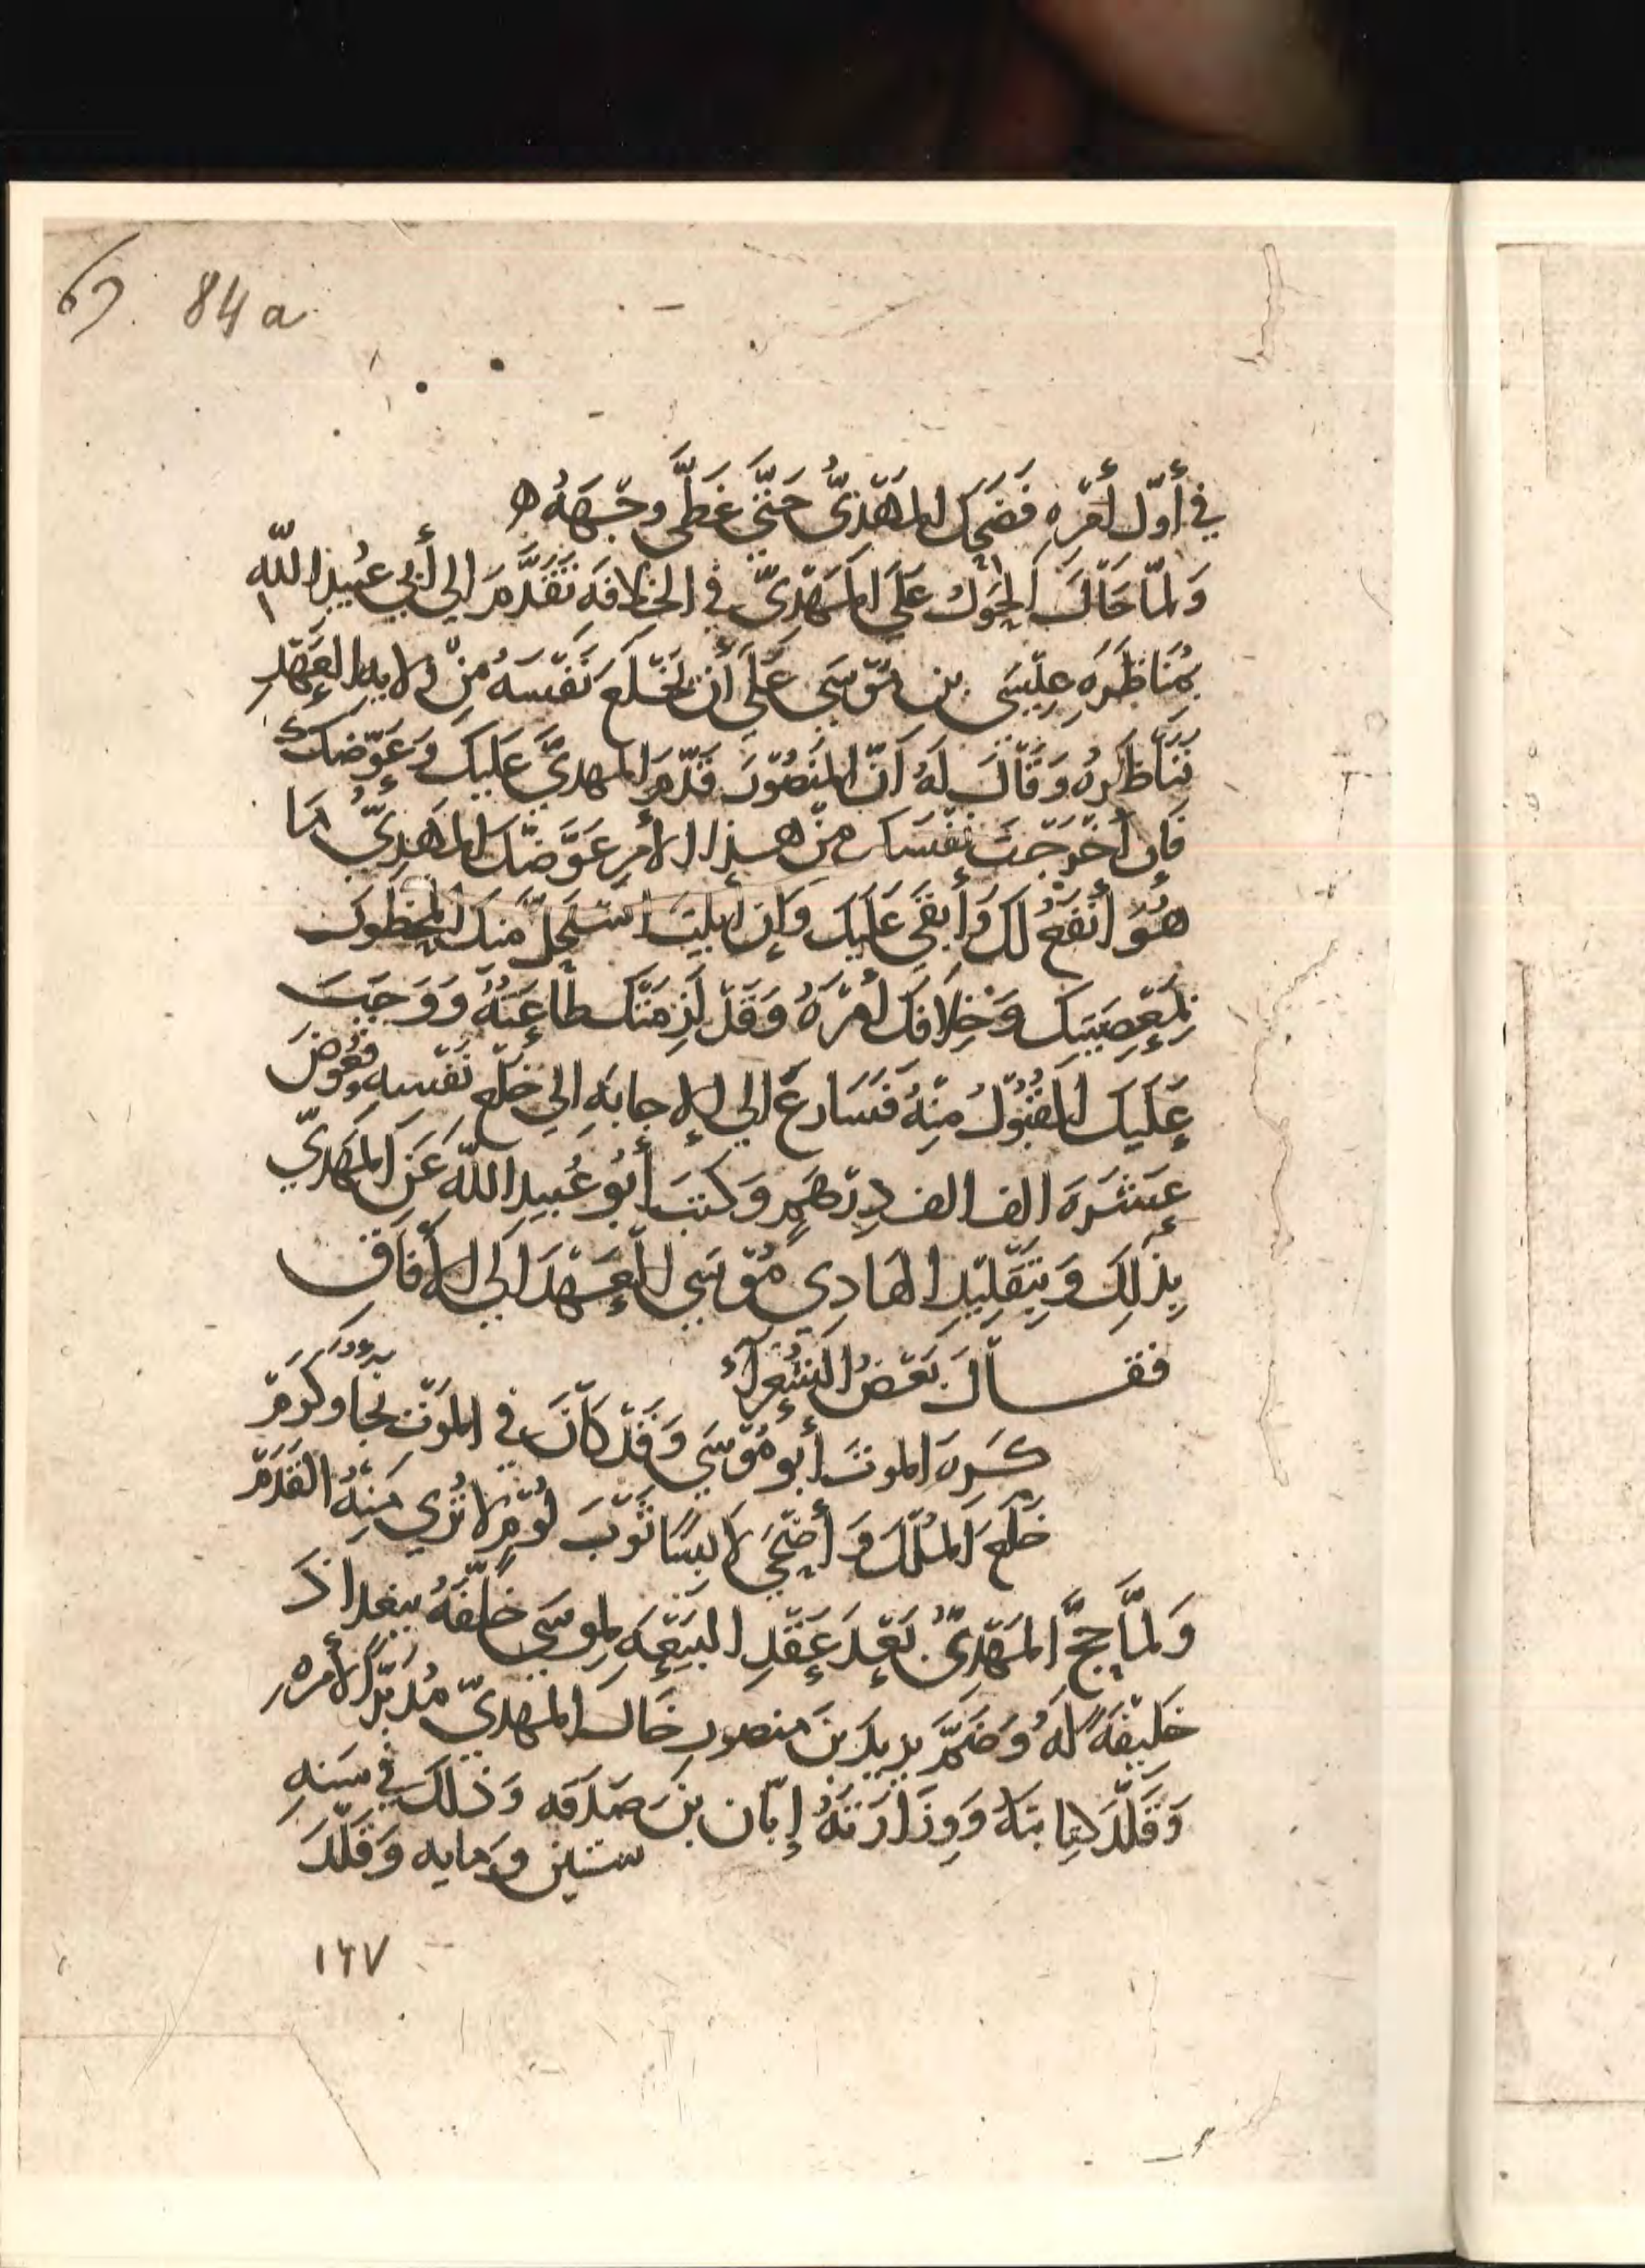 84 a
في أَوّل أَمْرِهِ فَضَحِكَ المَهْدِيُّ حَتَّى غَطَّى وجْهَهُ ه
وَلمّا حَالَ الحَوْل عَلَى المَهْدِيّ في الخلافَةِ تَقَدَّمَ الى أَبي عُبَيدِ اللّه
بمُنَاظَرَةِ عِيْسَى بن مُوْسَى عَلَى أَن يَخْلَع نَفْسَهُ مِنْ ولايه العَهْدِ
فَنَاظَرهُ وَقَالَ لَهُ اَنّ المَنصُوْرَ قَدّمَ المهديَّ عَلَيكَ وَعَوّضَكَ
فَإِن أَخْرَجْتَ نَفْسَكَ مِنْ هذا الأمرِ عَوَّضَكَ المَهْدِيُّ مَا
هُوَ أَنفَعُ لَكَ وَأَبقَى عَلَيكَ وَإن أَبَيْتَ استَحَلَّ مِنكَ المحظورَ
بمَعْصِيَتِكَ وَخِلَافكَ أَمْرَهُ وَقَدْ لَزِمَتْكَ طَاعَتُهُ وَوَجَبَ
عَلَيكَ القَبُوْلُ مِنْهُ فَسَارعَ الى الإجابَهِ الى خَلْعِ نَفْسه وَعُوِّضَ
عَشَرَةَ الف الف دِرْهَمٍ وَكَتَبَ أَبُو عُبَيد اللّه عَنِ المَهْدِيّ
بِذلِكَ وَبِتَقْلِيْدِ الهَادِي مُوْسَى العَهْدَ الى الأَفَاقِ
فقالَ بَعْضُ الشُعَرآءِ
كَرِهَ الموتَ أَبو مُوْسَى وَقَدْ كَانَ في المَوْتِ نجا وكَرَمْ
خَلَعَ المُلْكَ وَأَضْحَى لابِسًا ثَوْبَ لُوْمٍ لا تُرى مِنْهُ القَدَمْ
وَلمَّا حَجَّ المَهْدِيُّ بَعْدَ عَقْدِ البَيْعَهِ لموسَى خَلَّفَهُ ببغداذَ
خَلِيْفَةً لَهُ وَضَمَّ يَزِيدَ بنَ منصورٍ خَال المهديّ مُدَبّرًا لأمره
وَقَلَّدَ كِتابتَهُ وَوِزَارَتَهُ إبّان بنَ صَدَقه وَذلكَ في سَنه
ستين ومايه وَقَلَّدَ
١٦٧